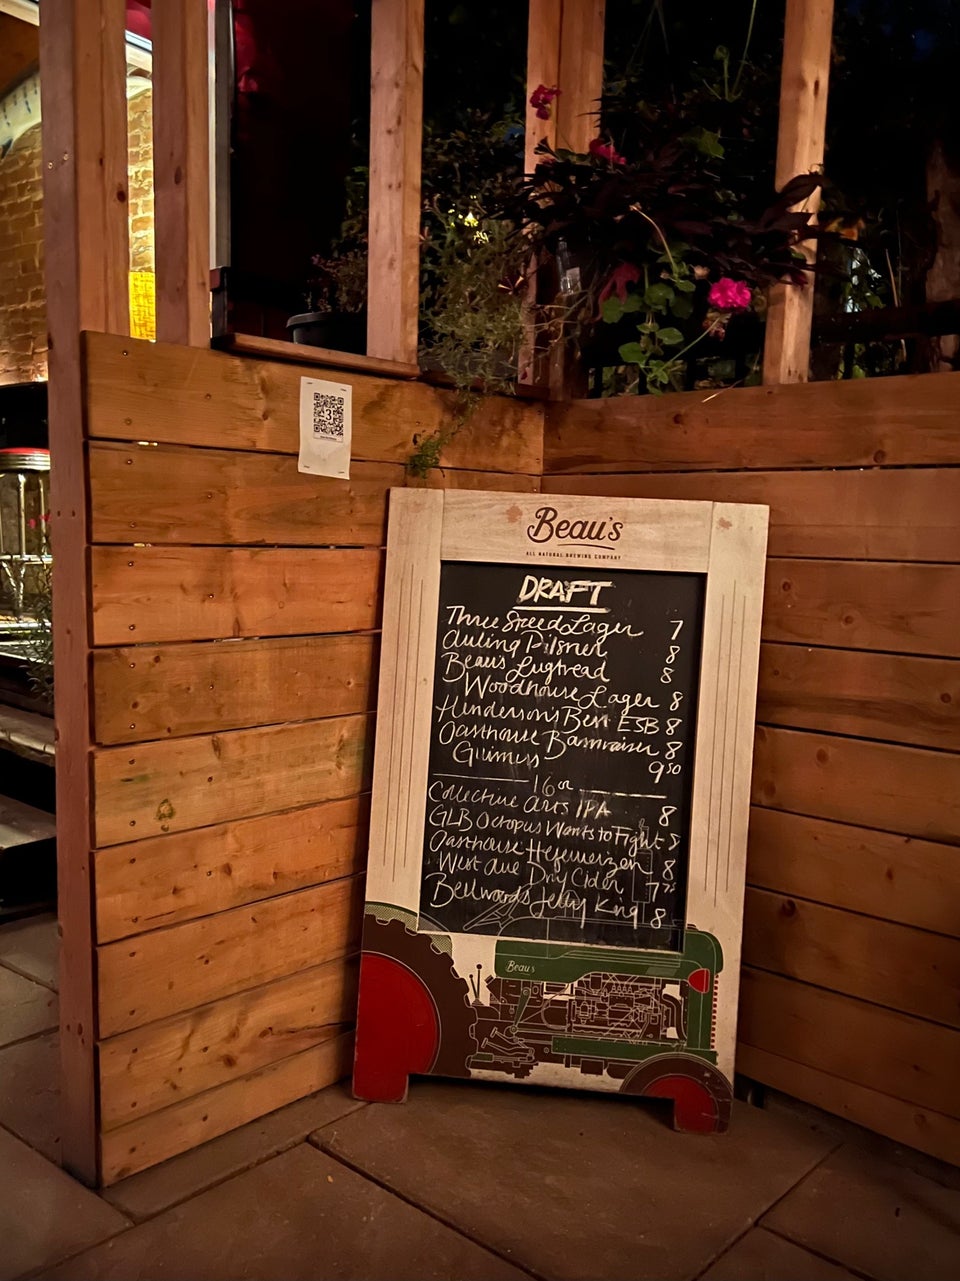 3
Beau's
ALL NATURAL BREWING COMPANY
DRAFT
Three Speed Lager 7
Pilsner 8
Beau's Lugtread 8
Woodhouse Lager 8
Henderson's Best ESB 8
Oasthouse Barnraiser 8
Guinness 9 50
16oz
Collective Arts IPA 8
GLB Octopus Wants to Fight 8
Oasthouse Hefeweizen 8
West Ave Dry Cider 7 75
Bellwoods Jelly King 8
Beau's